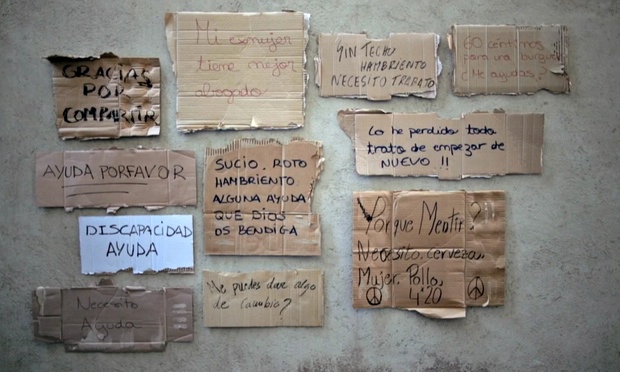 GRACIAS
POR
COMPARTIR
Mi exmujer
tiene mejor
abogado
SIN TECHO
HAMBRIENTO
NECESITO TRABAJO
60 céntimos
para una burguer
¿Me ayudas?
Lo he perdido todo
trato de empezar de
NUEVO !!
AYUDA PORFAVOR
SUCIO. ROTO
HAMBRIENTO
ALGUNA AYUDA
QUE DIOS
OS BENDIGA
DISCAPACIDAD
AYUDA
¿Porque Mentir?
Necesito. Cerveza.
Mujer. Pollo.
4'20
Necesito
Ayuda
Me puedes dar algo
de Cambio?